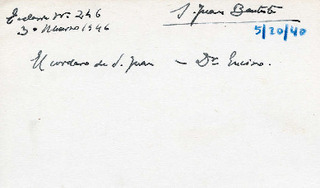 S. Juan Bautista
Esclava nº 246
3 · Marzo 1946
5/20/40
El cordero de S. Juan — Dr. Encina.